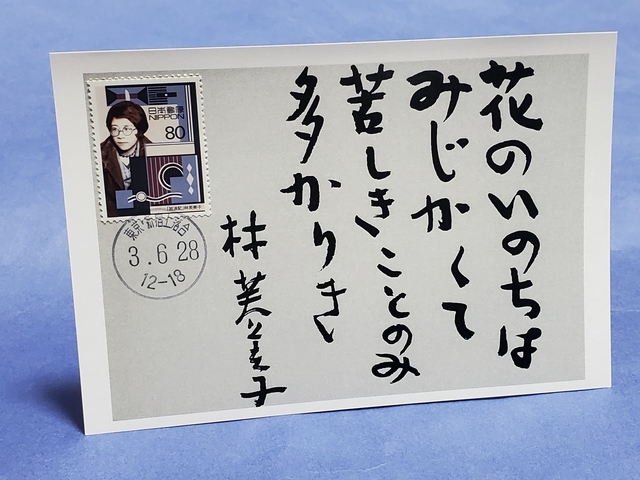 花のいのちは
みじかくて
苦しきことのみ
多かりき
林芙美子
日本郵便
NIPPON
80
東京・新宿上落合
3.6.28
12-18